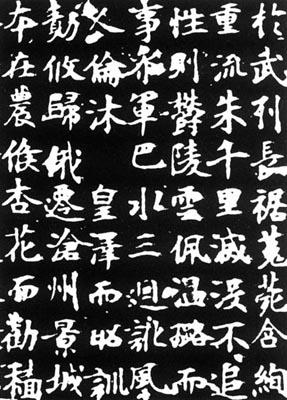 於武列長裾菟苑含絢
重流朱千里滅没不追
性則欝陵雲佩温璐而
事叅軍巴水三迴訛風
人倫沐 皇澤而昭訓
勣攸歸俄遷滄州景城
本在農候杏花而勸穡